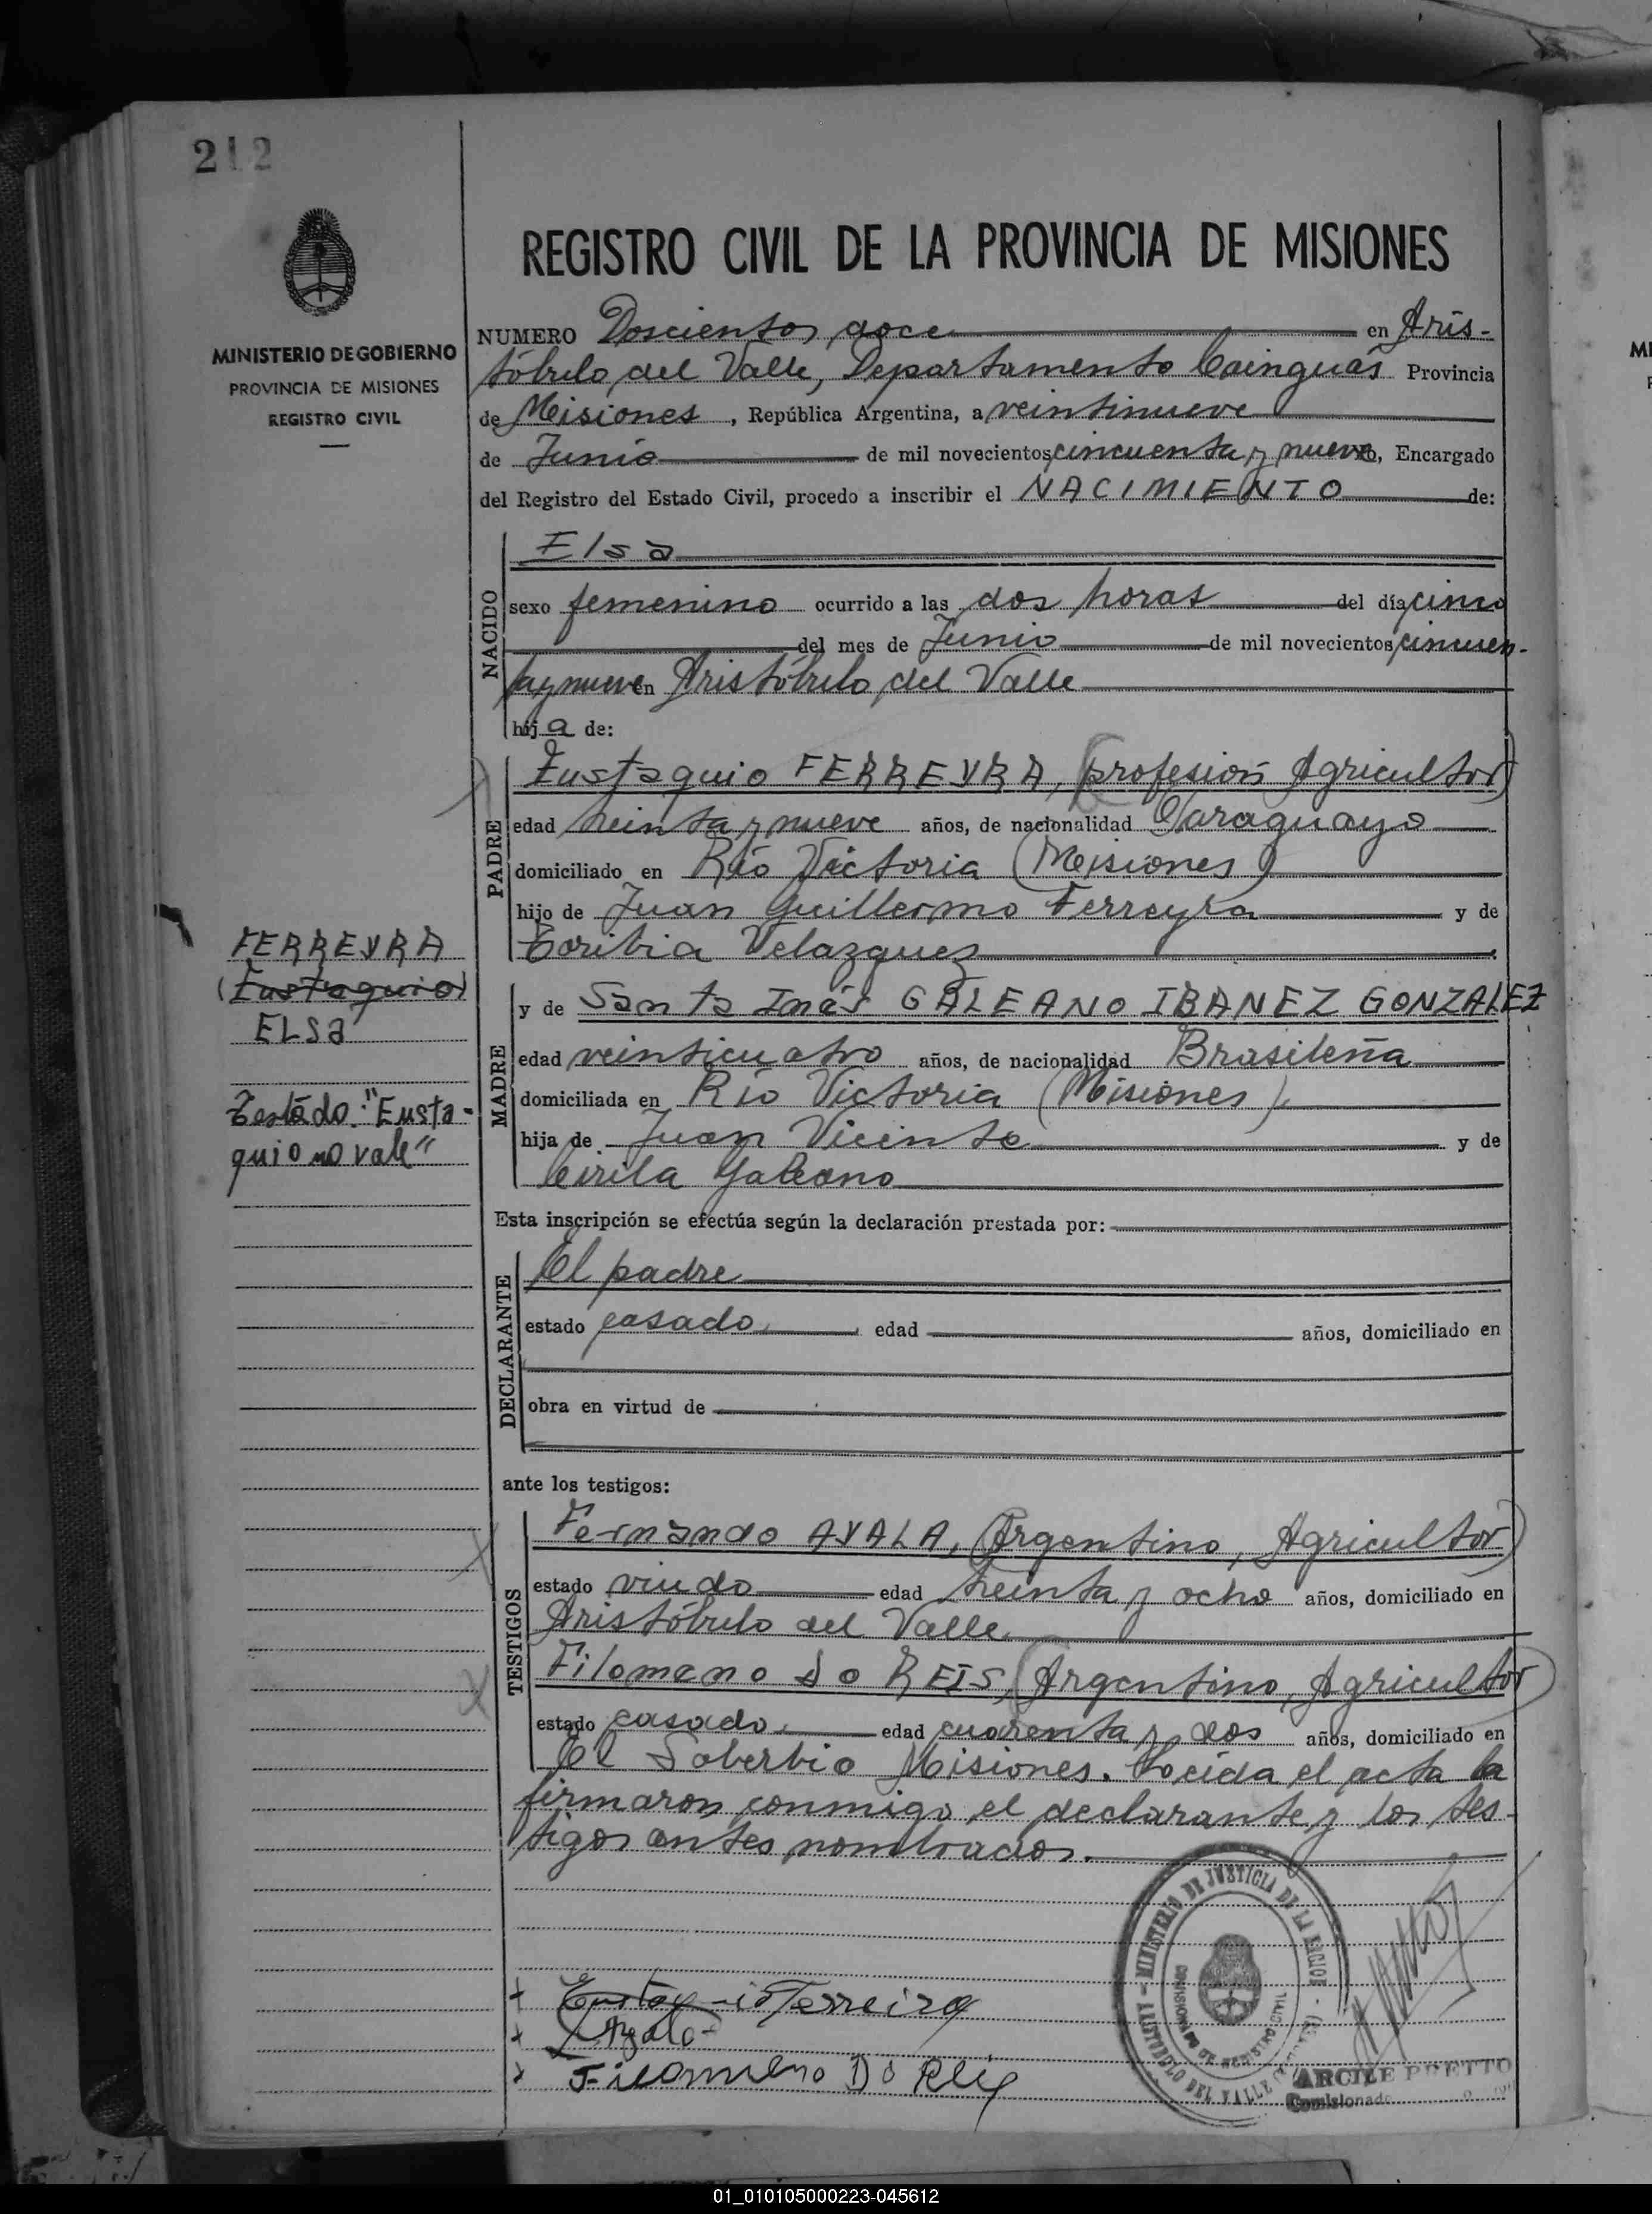 212
REGISTRO CIVIL DE LA PROVINCIA DE MISIONES
MINISTERIO DE GOBIERNO
PROVINCIA DE MISIONES
REGISTRO CIVIL
NUMERO Doscientos doce en Aris-
tóbulo del Valle, Departamento Cainguás Provincia
de Misiones, República Argentina, a veintinueve
de Junio de mil novecientos cincuenta y nueve, Encargado
del Registro del Estado Civil, procedo a inscribir el NACIMIENTO de:
NACIDO
Elsa
sexo femenino ocurrido a las dos horas del día cinco
del mes de Junio de mil novecientos cincuen-
ta y nueve en Aristóbulo del Valle
hija de:
PADRE
Eustaquio FERREYRA, (profesión Agricultor)
edad treinta y nueve años, de nacionalidad Paraguayo
domiciliado en Río Victoria (Misiones)
hijo de Juan Guillermo Ferreyra y de
Toribia Velazquez
FERREYRA
(Eustaquio)
ELSa
Testádo: "Eusta-
quio no vale"
MADRE
y de Santa Inés GALEANO IBANEZ GONZALEZ
edad veinticuatro años, de nacionalidad Brasileña
domiciliada en Río Victoria (Misiones),
hija de Juan Vicente y de
Cirila Galeano
Esta inscripción se efectúa según la declaración prestada por:
DECLARANTE
El padre
estado casado, edad años, domiciliado en
obra en virtud de
ante los testigos:
TESTIGOS
Fernando AYALA, (Argentino, Agricultor)
estado viudo edad treinta y ocho años, domiciliado en
Aristóbulo del Valle
Filomeno do REIS, (Argentino, Agricultor)
estado casado, edad cuarenta y dos años, domiciliado en
El Soberbio Misiones. Leída el acta la
firmaron conmigo el declarante y los tes-
tigos antes nombrados.
MINISTERIO DE JUSTICIA DE LA NACION
ARISTOBULO DEL VALLE
Eustaquio Ferreira
Ayala
Filomeno Do Reis
ARCILE PRETTO
Comisionado
01_010105000223-045612